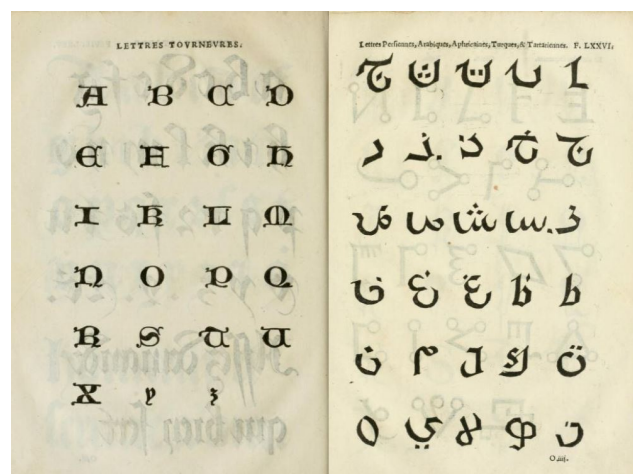 LETTRES TOVRNEVRES.
A B C D
E F G H
I K L M
N O P Q
R S T V
X y z
Lettres Persiennes, Arabiques, Aphricaines, Turques, & Tartariennes. F. LXXVI.
ا ب ت ث ج
س ش ص ض
ط ظ ع غ ف
ق ك ل م ن
و لا ي